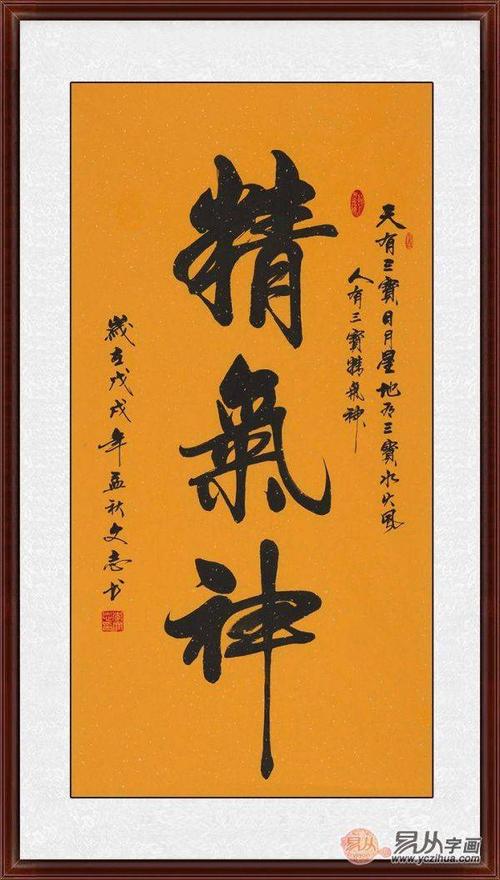 天有三寳日月星地有三寳水火風
人有三寳精氣神
精氣神
歲在戊戌年孟秋文志书
易从字画
www.yczihua.com